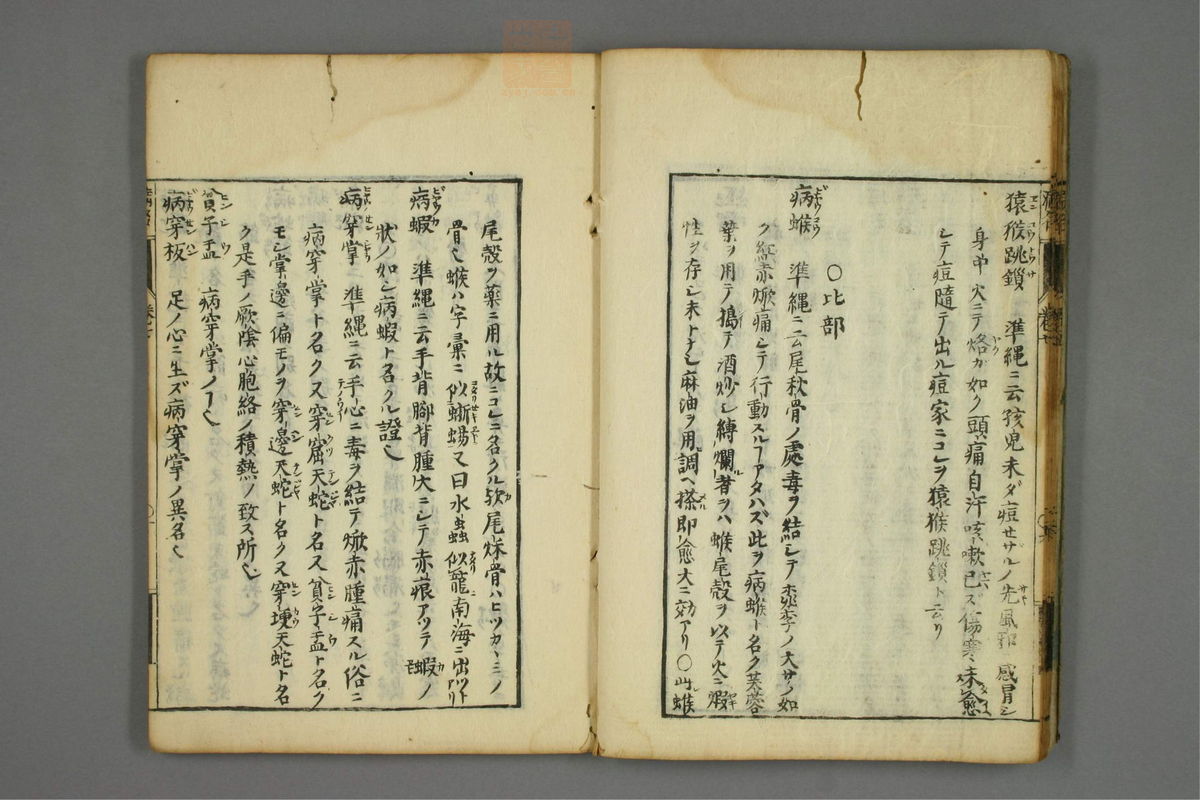 猿猴跳鎖 準縄ニ云孩児未ダ痘セサルノ先風邪感冒シ
身中火ニテ烙ガ如ク頭痛自汗咳嗽已ス傷寒未愈
シテ痘隨テ出ル痘家ニコレヲ猿猴跳鎖ト云リ
〇比部
病蝬 準縄ニ云尾秋骨ノ處毒ヲ結シテ桃李ノ大サノ如
ク紅赤焮痛シテ行動スルヿアタハズ此ヲ病蝬ト名ク芙蓉
葉ヲ用テ搗テ酒炒シ縛爛者ヲハ蝬尾殻ヲ以テ火ニ煆
性ヲ存シ末トナシ麻油ヲ用調ヘ搽即愈大ニ効アリ〇此蝬
尾殻ヲ薬ニ用ル故ニコレニ名クル欤尾烌骨ハヒツカヽミノ
骨也蝬ハ字彙ニ似蜥蜴又曰水虫似籠南海ニ出ツトアリ
病蝦 準縄ニ云手背脚背腫大ニシテ赤痕アツテ蝦ノ
状ノ如シ病蝦ト名クル證也
病穿掌 準縄ニ云手心ニ毒ヲ結テ焮赤腫痛スル俗ニ
病穿掌ト名クス穿窟天蛇ト名ス貧子盂ト名ク
モシ掌邊ニ偏モノヲ穿邊天蛇ト名クス穿埂天蛇ト名
ク是手ノ厥陰心胞絡ノ積熱ノ致ス所也
貧子盂 病穿掌ノヿ也
病穿板 足ノ心ニ生ズ病穿掌ノ異名也